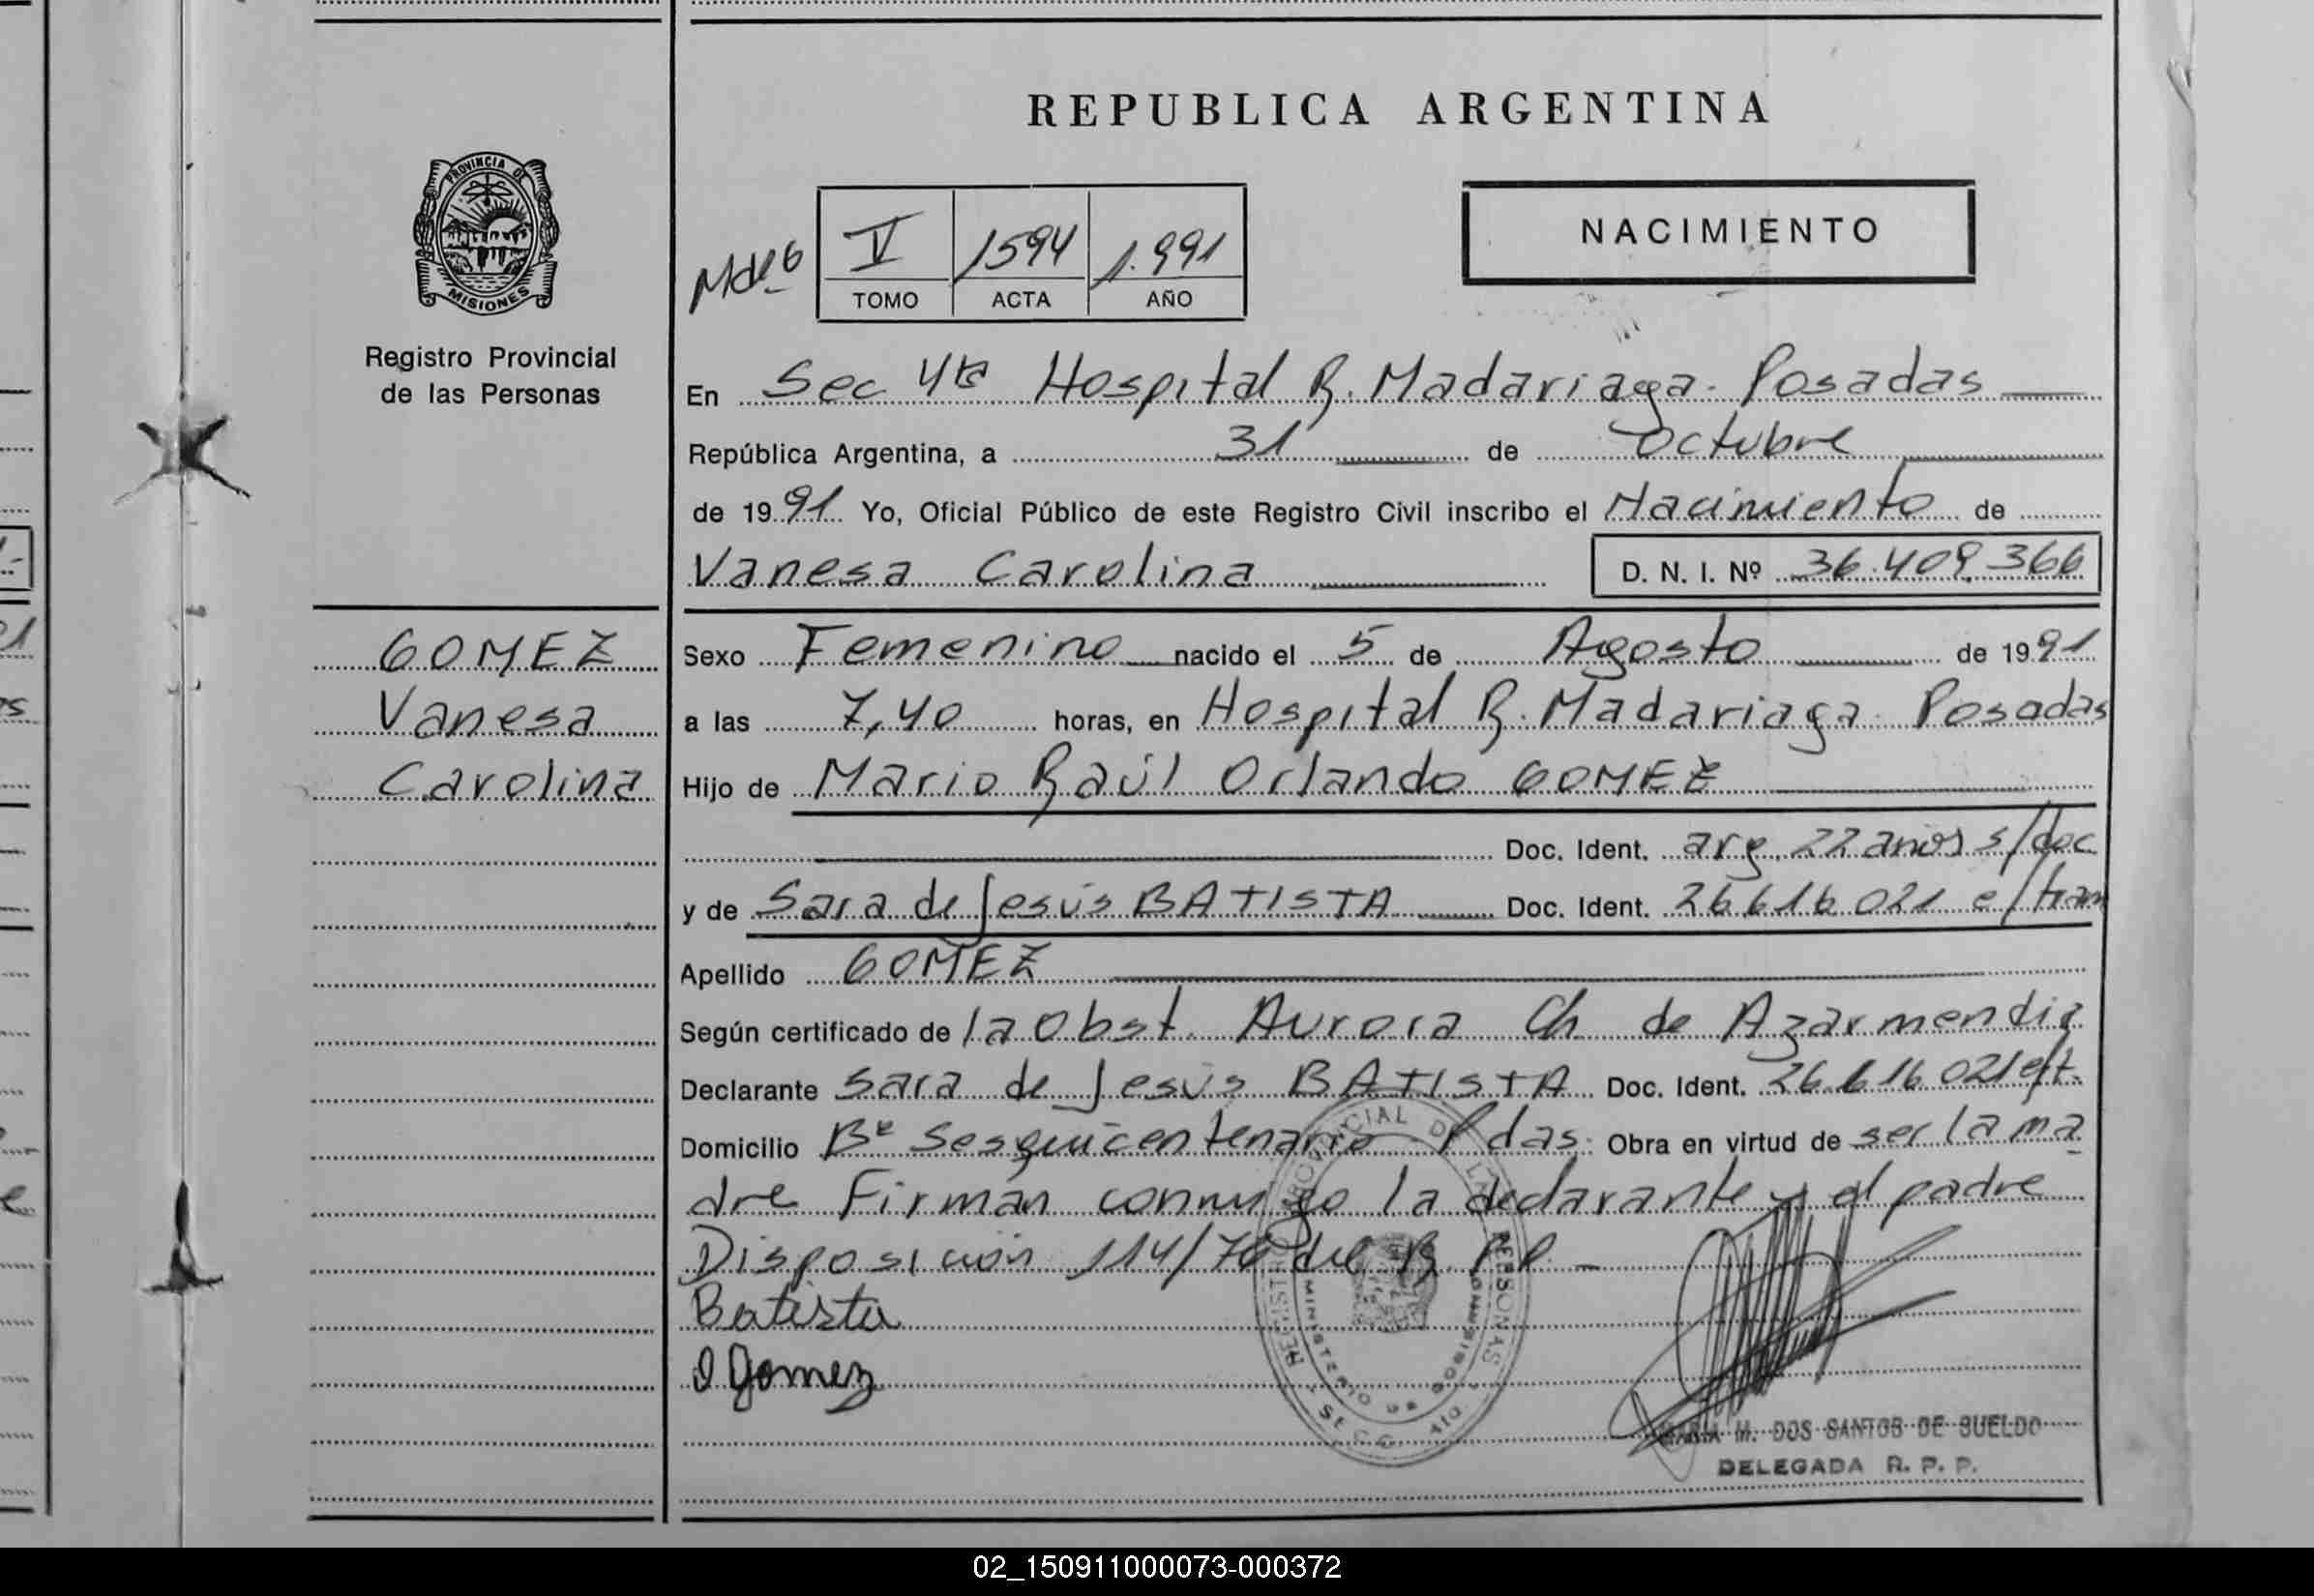 REPUBLICA ARGENTINA
PROVINCIA DE
MISIONES
Registro Provincial
de las Personas
V 1594 1.991
TOMO ACTA AÑO
NACIMIENTO
En Sec 4ta Hospital R. Madariaga - Posadas
República Argentina, a 31 de Octubre
de 1991 Yo, Oficial Público de este Registro Civil inscribo el Nacimiento de
Vanesa Carolina D. N. I. Nº 36.409.366
GOMEZ
Vanesa
Carolina
Sexo Femenino nacido el 5 de Agosto de 1991
a las 7,40 horas, en Hospital R. Madariaga - Posadas
Hijo de Mario Raúl Orlando GOMEZ
Doc. Ident. arg. 22 años s/doc
y de Sara de Jesús BATISTA Doc. Ident. 26.616.021 e/tram
Apellido GOMEZ
Según certificado de la Obst. Aurora Ch de Azarmendia
Declarante Sara de Jesús BATISTA Doc. Ident. 26.616.021 e/t.
Domicilio Bº Sesquicentenario - Pdas. Obra en virtud de ser la ma
dre Firman conmigo la declarante y el padre
Disposición 114/76 del R. P. P. -
Batista
O Gomez
MARIA M. DOS SANTOS DE SUELDO
DELEGADA R. P. P.
02_150911000073-000372